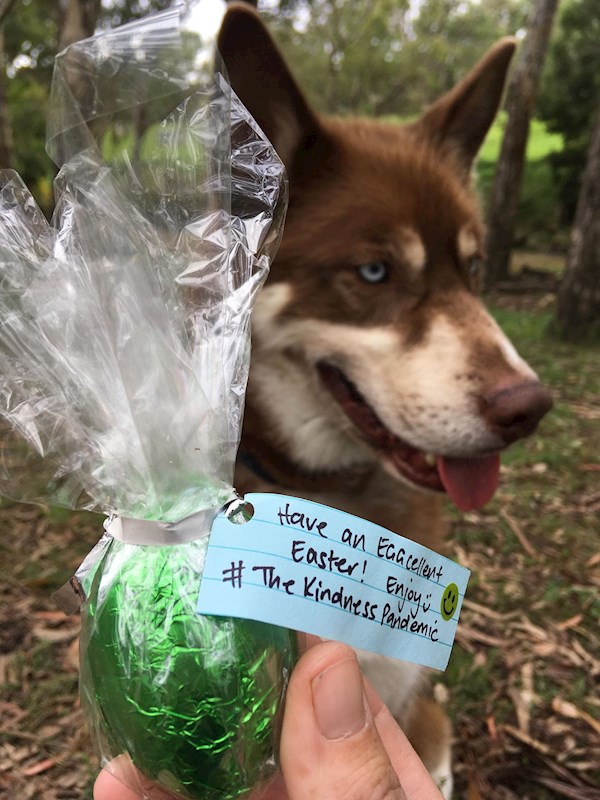 Have an EGGcellent
Easter! Enjoy ü
# The Kindness Pandemic